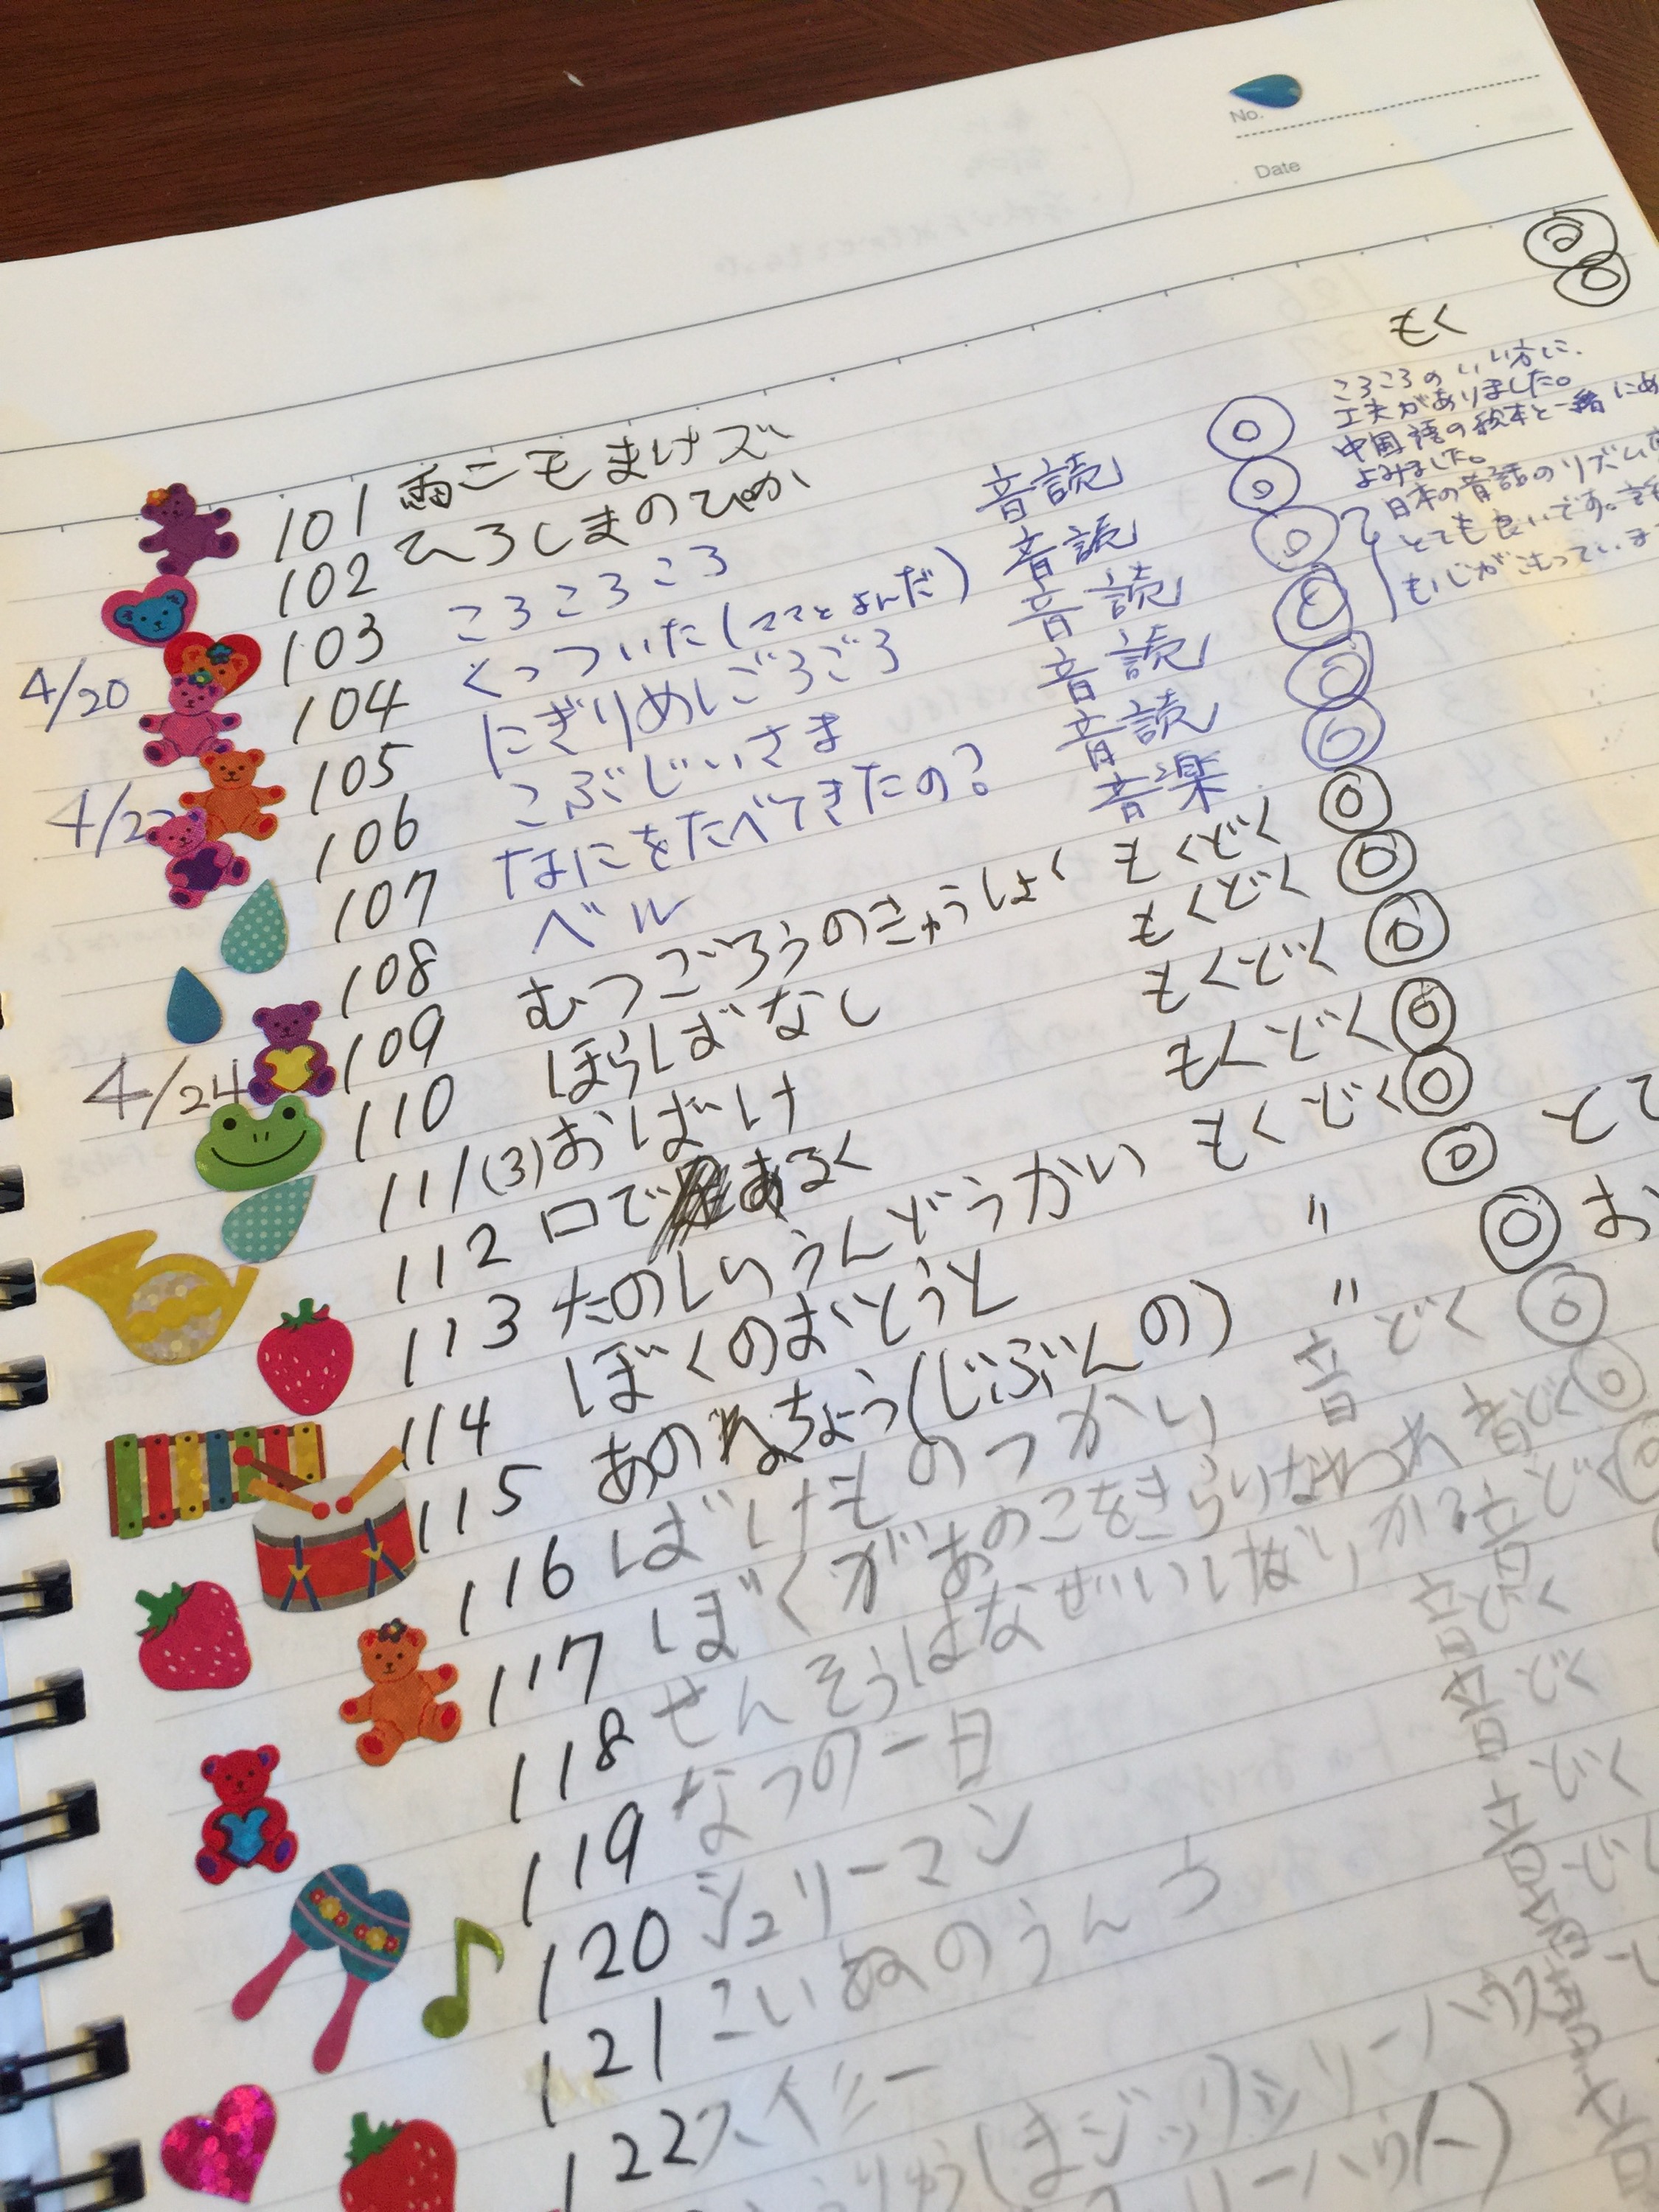 No.
Date
もく
101 雨ニモまけズ
102 ひろしまのぴか
103 ころころころ 音読 ◎
104 くっついた(ママとよんだ) 音読 ◎
4/20 105 にぎりめしごろごろ 音読 ◎
106 こぶじいさま 音読 ◎
4/22 107 なにをたべてきたの? 音読 ◎
108 ベル 音楽 ◎
109 むつごろうのきゅうしょく もくどく ◎
4/24 110 ほらばなし もくどく ◎
111 (3)おばけ もくどく ◎
112 口であるく もくどく ◎
113 たのしいうんどうかい もくどく ◎
114 ぼくのおとうと 〃 ◎
115 あのねちょう(じぶんの) 〃 ◎
116 ばけものつかい 音どく ◎
117 ぼくがあのこをきらいなわけ 音どく ◎
118 せんそうはなぜいけないか? 音どく ◎
119 なつの一日 音どく
120 ジュリーマン どく
121 こいぬのうんち どく
122 スイミー
ころころのいい方に、
工夫がありました。
中国語の絵本と一緒に
よみました。
日本の昔話のリズム
とても良いです。
心がこもっていま